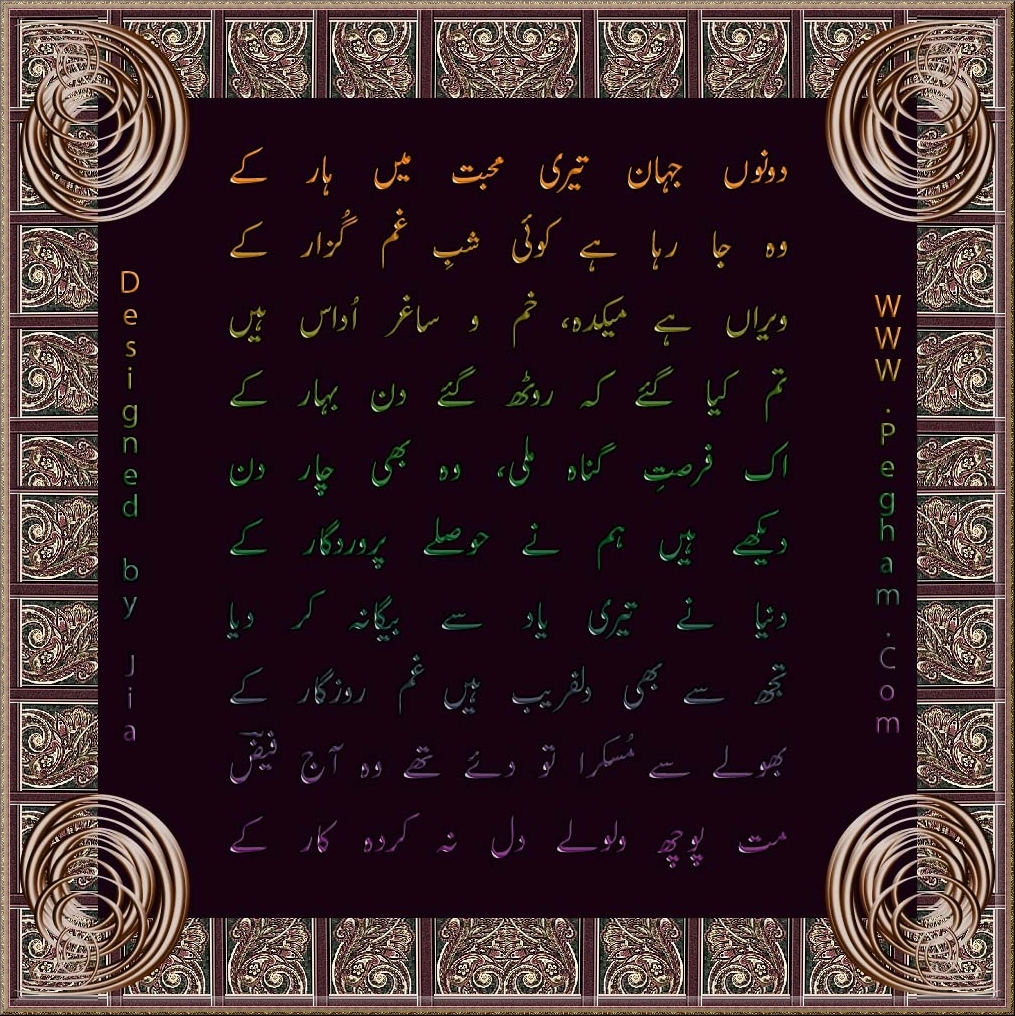 دونوں جہان تیری محبت میں ہار کے
وہ جا رہا ہے کوئی شبِ غم گُزار کے
ویراں ہے میکدہ، خم و ساغر اُداس ہیں
تم کیا گئے کہ روٹھ گئے دن بہار کے
اک فرصتِ گناہ ملی، وہ بھی چار دن
دیکھے ہیں ہم نے حوصلے پروردگار کے
دنیا نے تیری یاد سے بیگانہ کر دیا
تجھ سے بھی دلفریب ہیں غم روزگار کے
بھولے سے مُسکرا تو دئے تھے وہ آج فیضؔ
مت پوچھ ولولے دل نہ کردہ کار کے
Designed by Jia
WWW.Pegham.Com